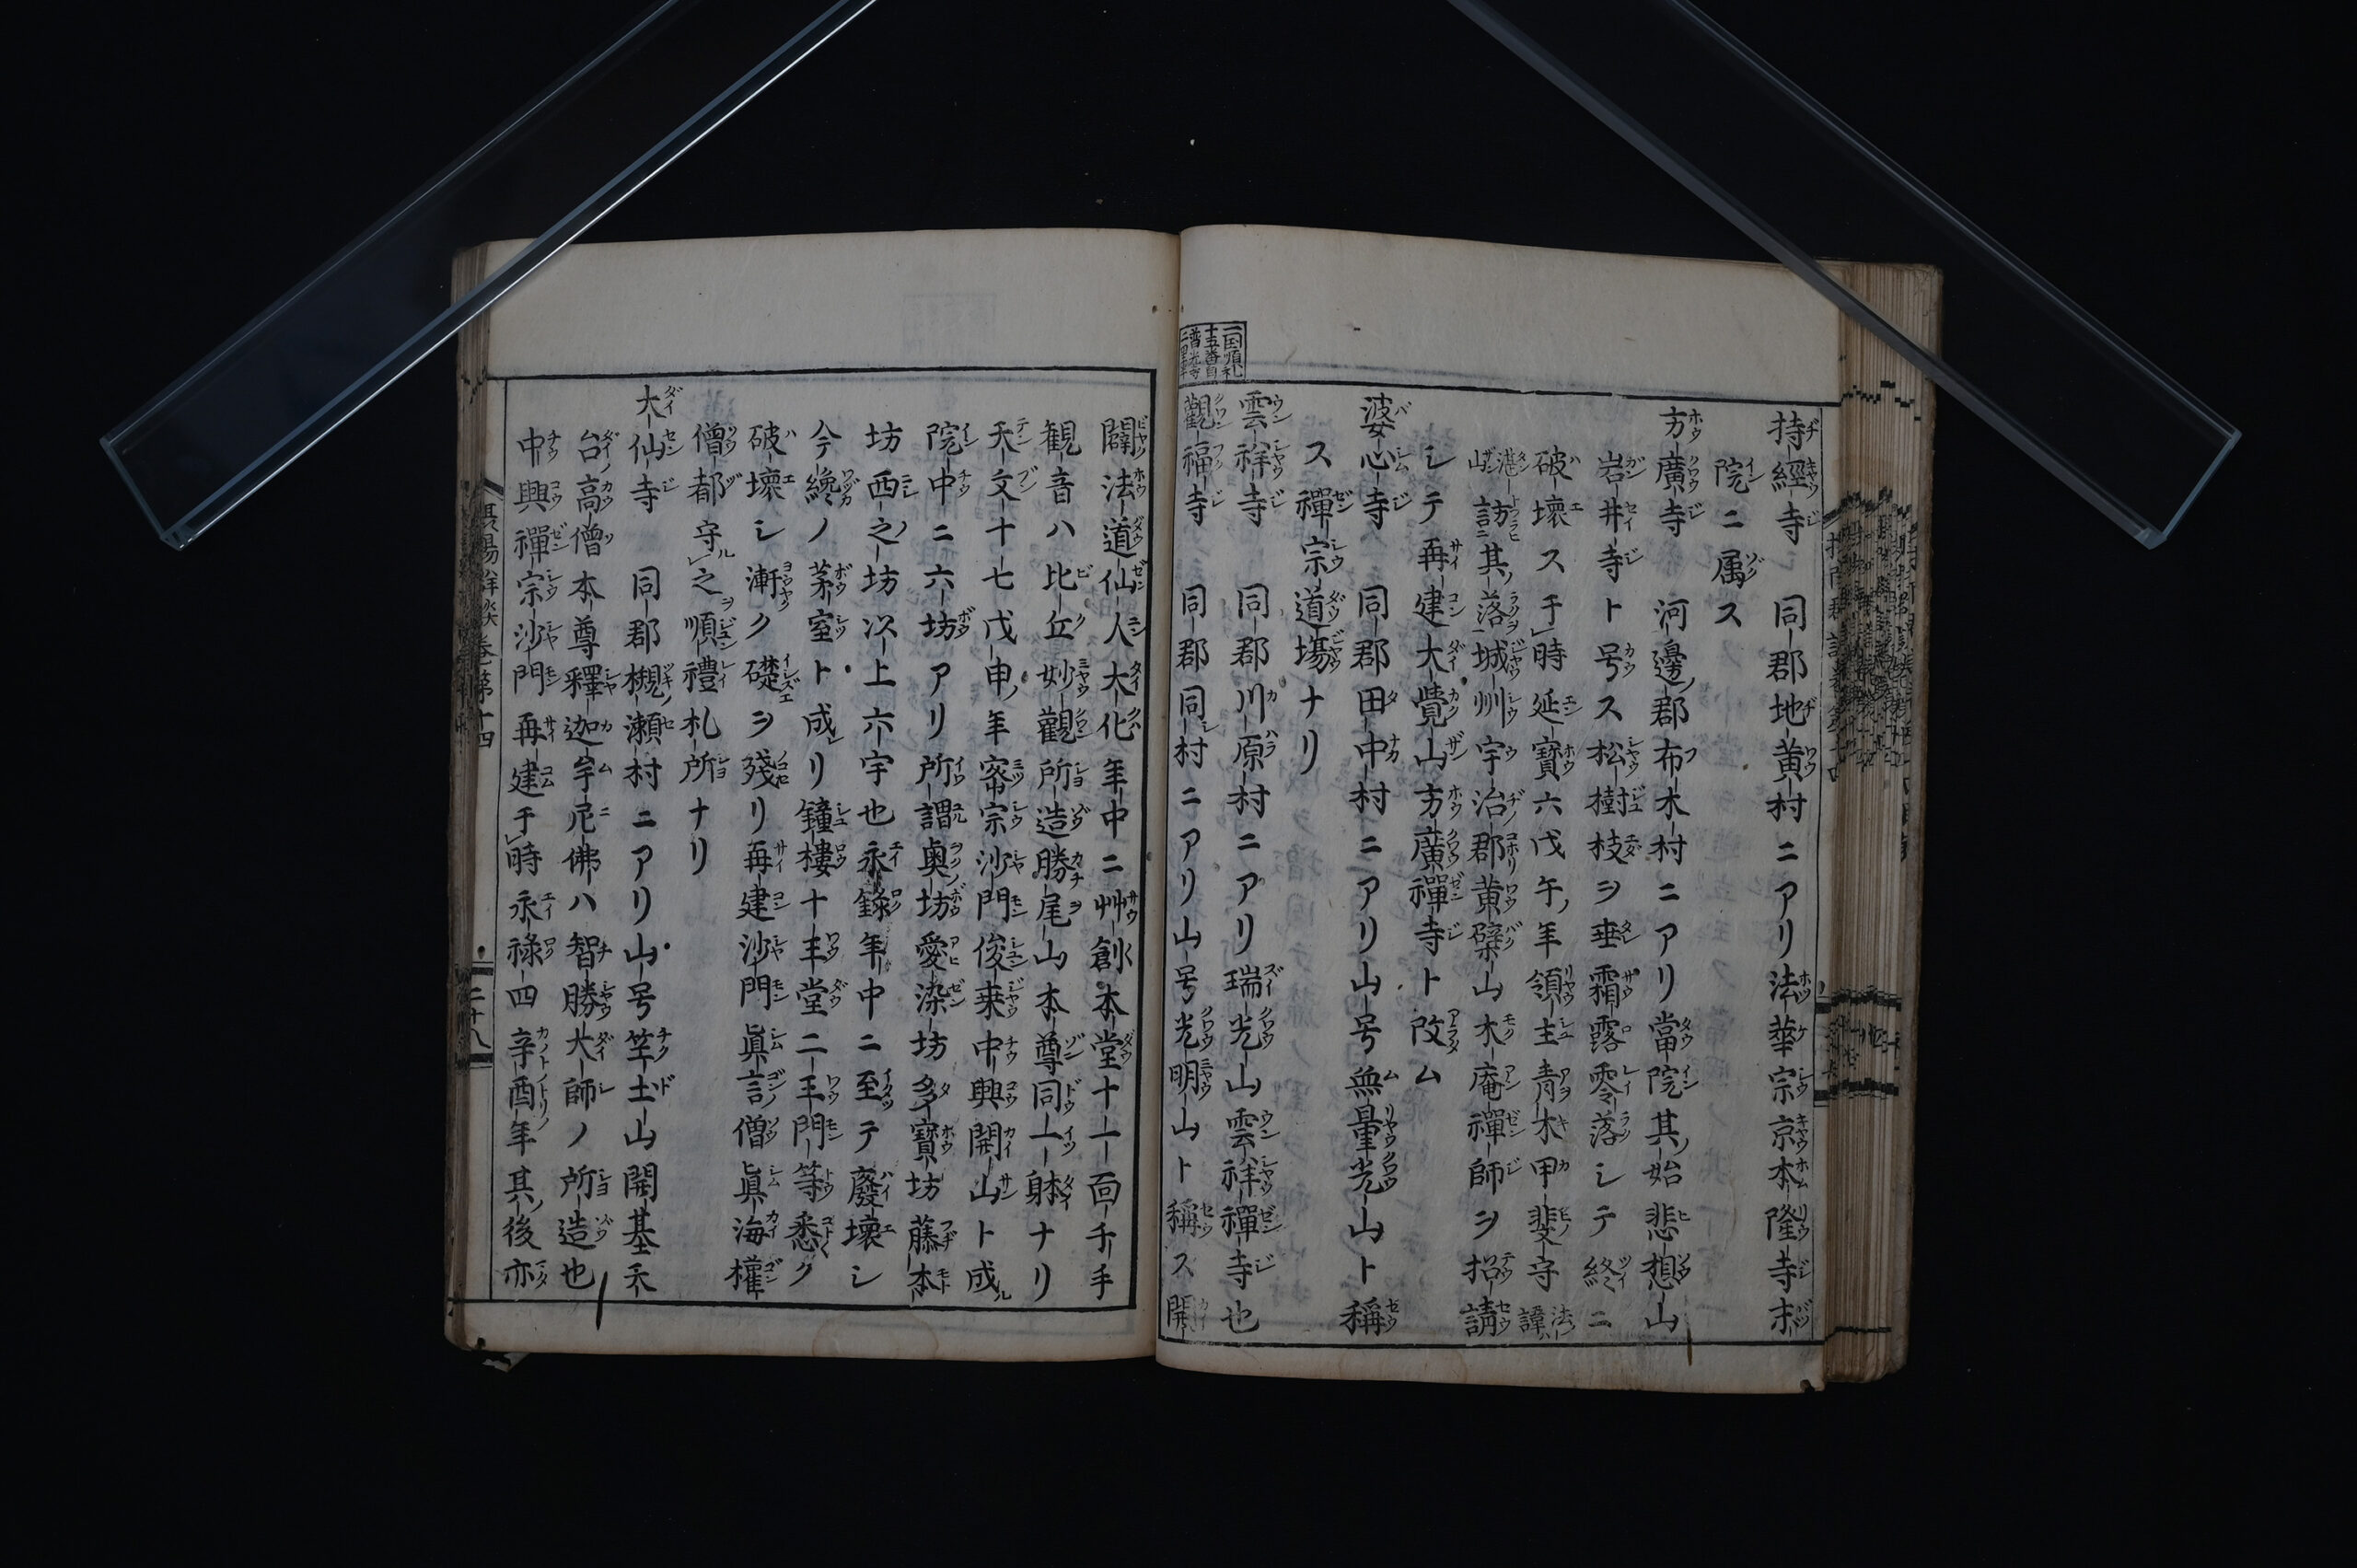 持經寺 同郡地黄村ニアリ法華宗京本隆寺末
院ニ属ス
方廣寺 河邊郡布木村ニアリ當院其始悲想山
岩井寺ト号ス松樹枝ヲ垂霜露零落シテ終ニ
破壞ス于時延寶六戊午年領主青木甲斐守法諱ハ
湛山訪其落城州宇治郡黄檗山木庵禪師ヲ招請
シテ再建大覺山方廣禪寺ト改ム
婆心寺 同郡田中村ニアリ山号無量光山ト稱
ス禪宗道場ナリ
雲祥寺 同郡川原村ニアリ瑞光山雲祥禪寺也
二国順礼
十五番目
普光寺
觀福寺 同郡同村ニアリ山号光明山ト稱ス開
闢法道仙人大化年中ニ艸創本堂十一面千手
観音ハ比丘妙觀所造勝尾山本尊同一躰ナリ
天文十七戊申年密宗沙門俊乗中興開山ト成
院中ニ六坊アリ所謂奥坊愛染坊多寶坊藤本
坊西之坊以上六宇也永錄年中ニ至テ廢壞シ
今纔ノ茅室ト成リ鐘樓十王堂二王門等悉ク
破壞シ漸ク礎ヲ殘リ再建沙門眞言僧眞海權
僧都守之順禮札所ナリ
大仙寺 同郡槻瀬村ニアリ山号竺土山開基天
台高僧本尊釋迦牟尼佛ハ智勝大師ノ所造也
中興禪宗沙門再建于時永禄四辛酉年其後亦
二十八